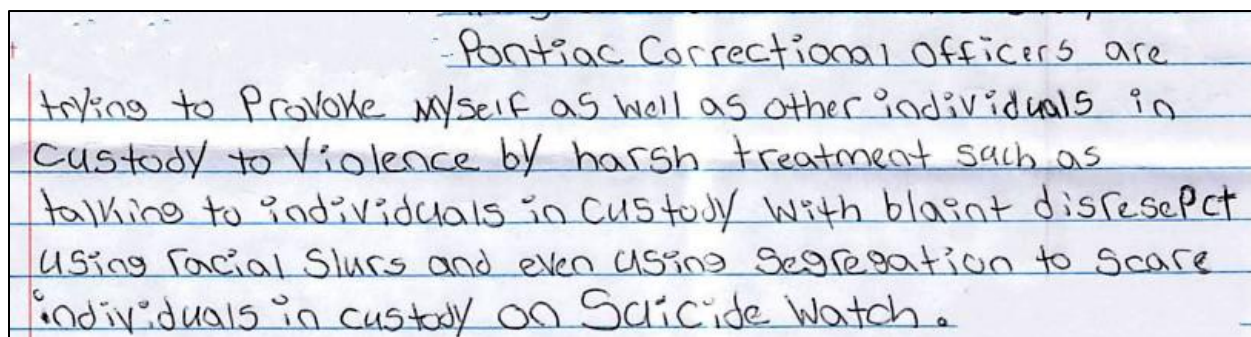 Pontiac Correctional officers are
trying to Provoke Myself as well as other individuals in
Custody to Violence by harsh treatment such as
talking to individuals in custody with blaint disresepct
using racial Slurs and even using Segregation to Scare
individuals in custody on Suicide Watch.